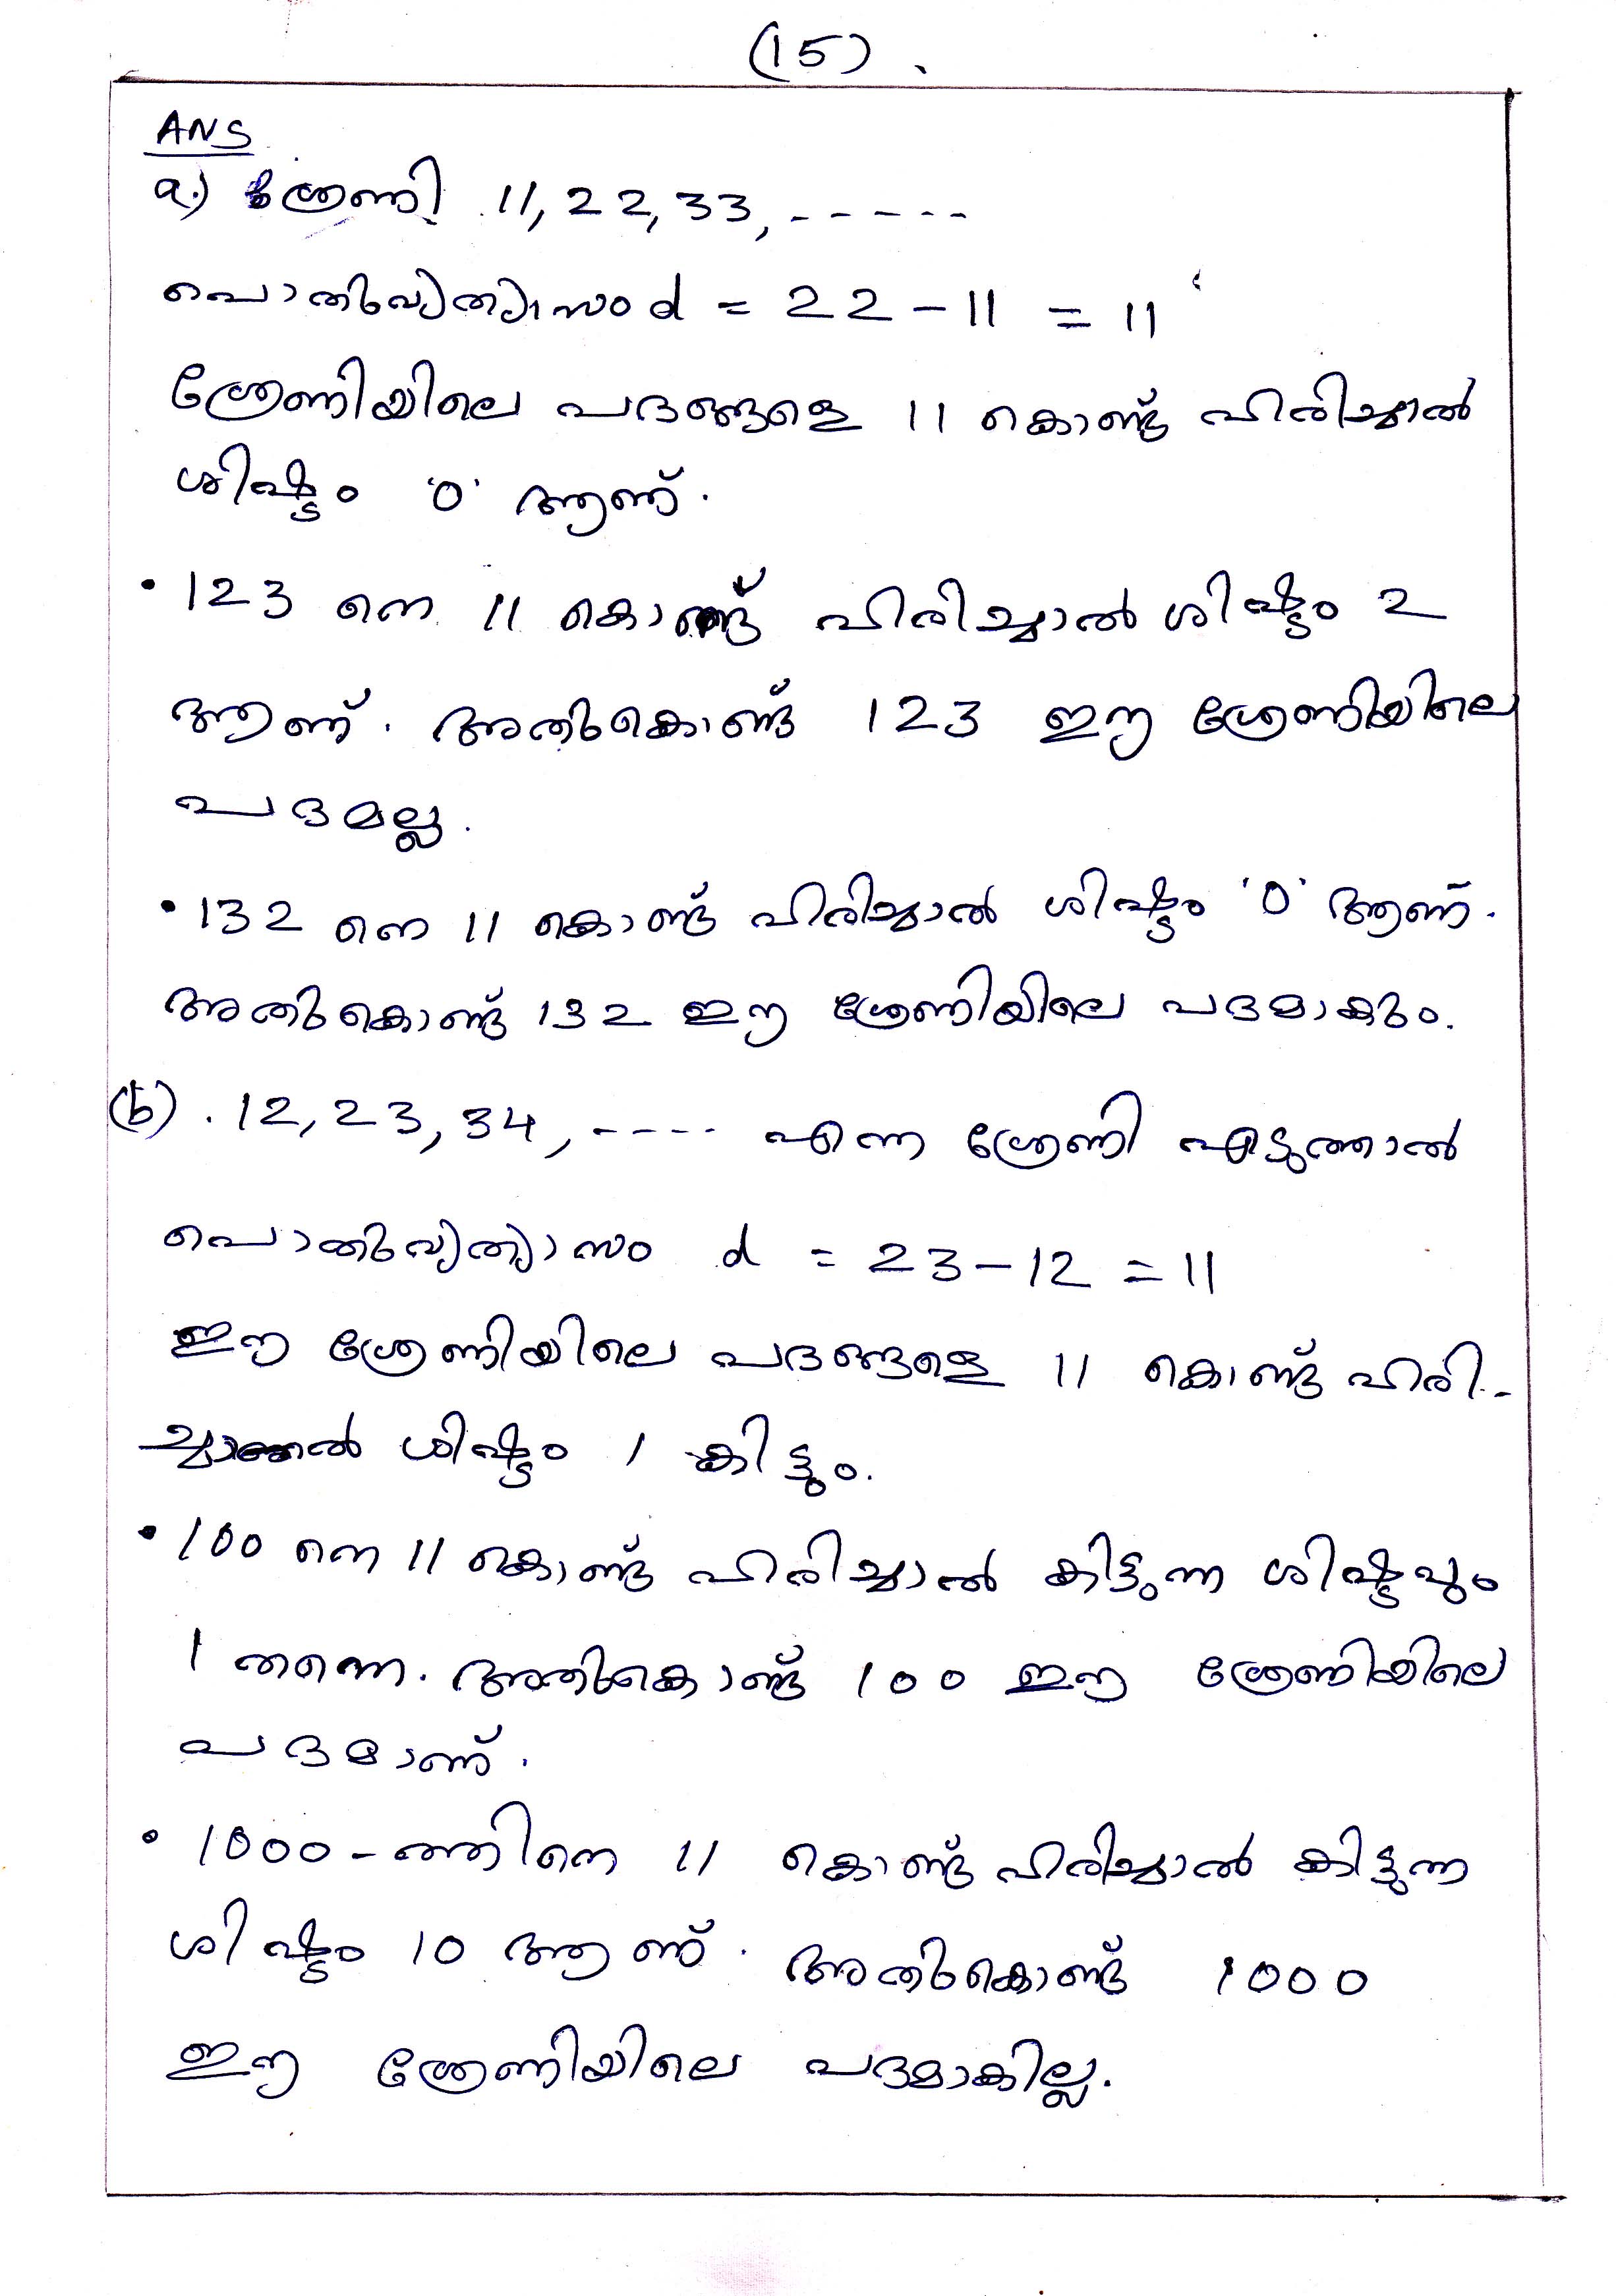 (15).
ANS
a.) ശ്രേണി 11, 22, 33, ------
പൊതുവ്യത്യാസം d = 22 - 11 = 11
ശ്രേണിയിലെ പദങ്ങളെ 11 കൊണ്ട് ഹരിച്ചാൽ
ശിഷ്ടം '0' ആണ്.
• 123 നെ 11 കൊണ്ട് ഹരിച്ചാൽ ശിഷ്ടം 2
ആണ്. അതുകൊണ്ട് 123 ഈ ശ്രേണിയിലെ
പദമല്ല.
• 132 നെ 11 കൊണ്ട് ഹരിച്ചാൽ ശിഷ്ടം '0' ആണ്.
അതുകൊണ്ട് 132 ഈ ശ്രേണിയിലെ പദമാകും.
(b). 12, 23, 34, ---- എന്ന ശ്രേണി എടുത്താൽ
പൊതുവ്യത്യാസം d = 23 - 12 = 11
ഈ ശ്രേണിയിലെ പദങ്ങളെ 11 കൊണ്ട് ഹരി-
ച്ചാൽ ശിഷ്ടം 1 കിട്ടും.
• 100 നെ 11 കൊണ്ട് ഹരിച്ചാൽ കിട്ടുന്ന ശിഷ്ടവും
1 തന്നെ. അതുകൊണ്ട് 100 ഈ ശ്രേണിയിലെ
പദമാണ്.
• 1000-ത്തിനെ 11 കൊണ്ട് ഹരിച്ചാൽ കിട്ടുന്ന
ശിഷ്ടം 10 ആണ്. അതുകൊണ്ട് 1000
ഈ ശ്രേണിയിലെ പദമാകില്ല.